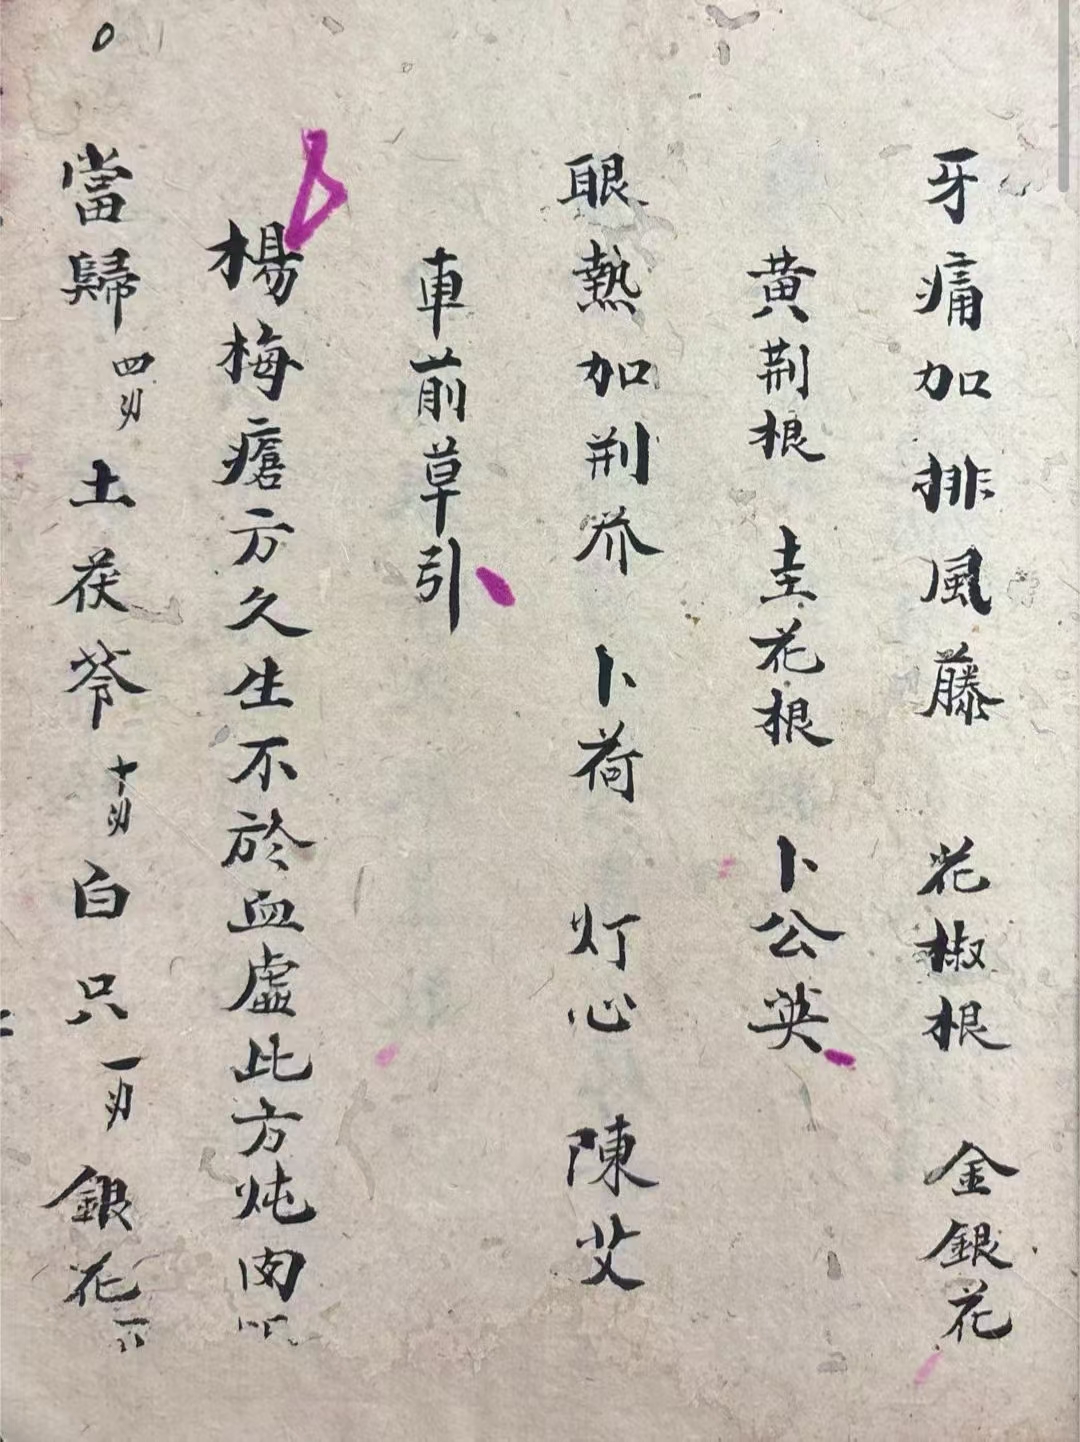 牙痛加排風藤 花椒根 金銀花
黃荆根 圭花根 卜公英
眼熱加荆芥 卜荷 灯心 陳艾
車前草引
楊梅瘡方久生不於血虛此方炖肉
當歸四刄 土茯苓十刄 白只一刄 銀花